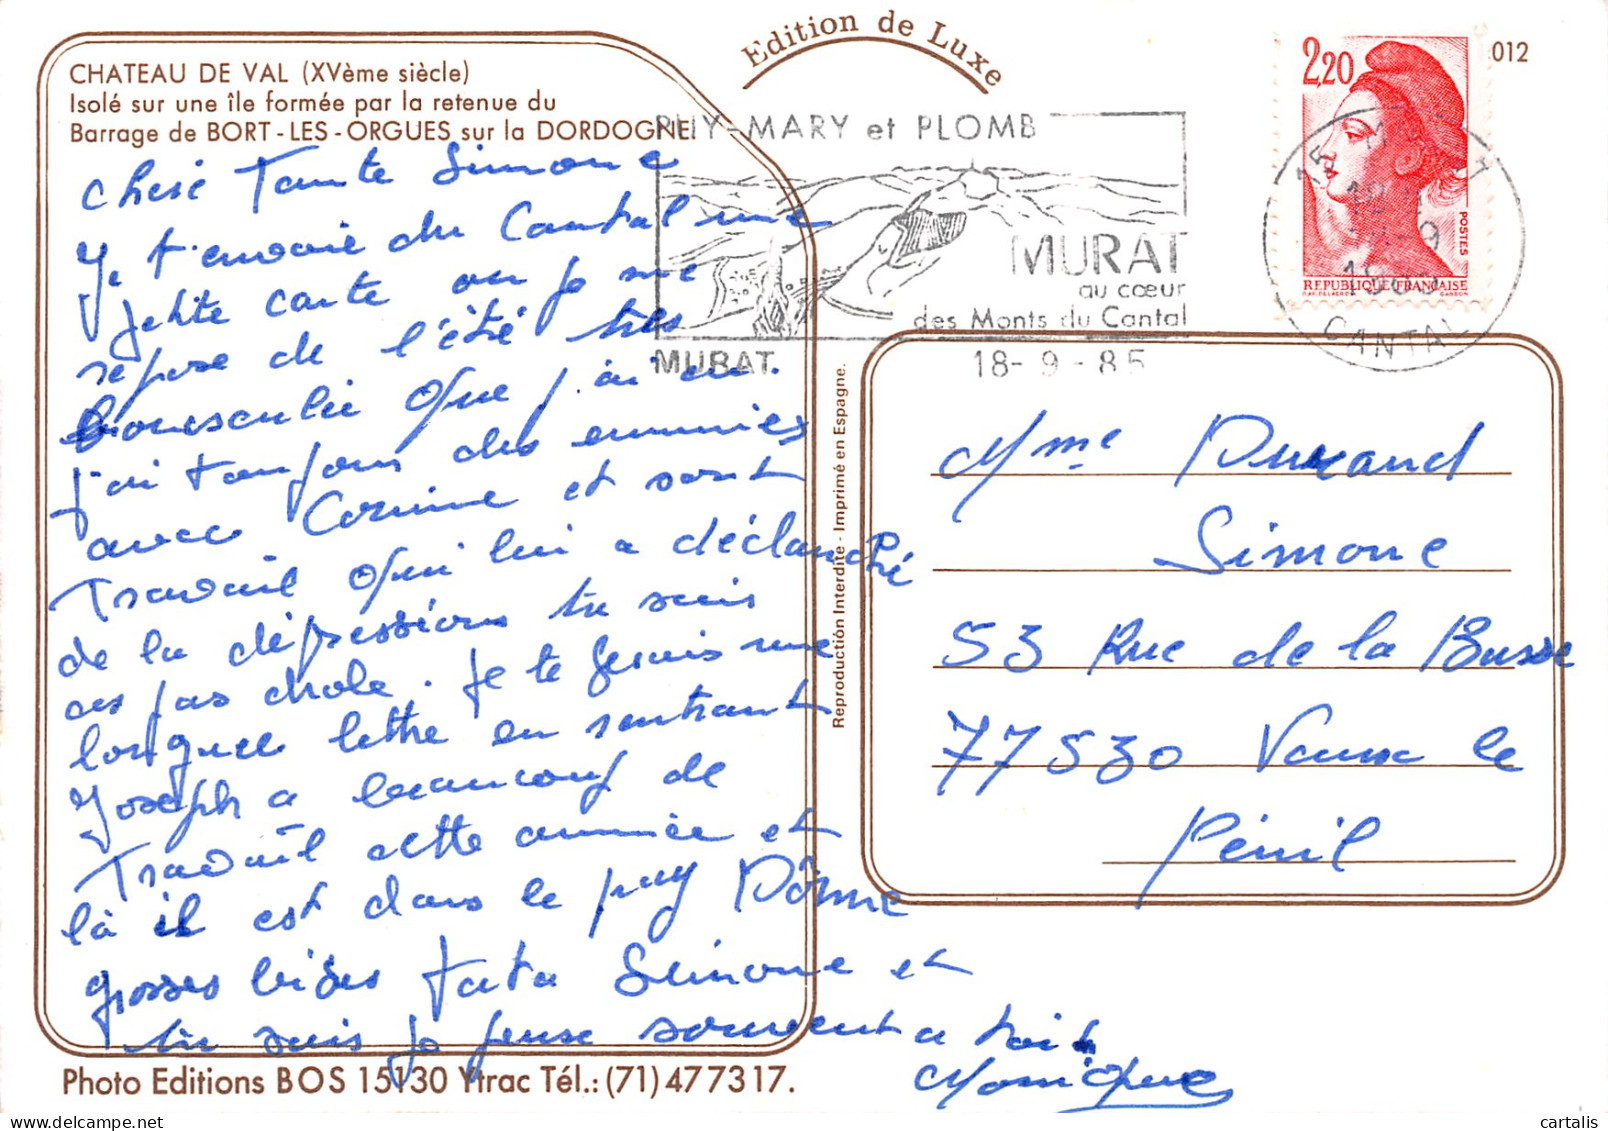 Edition de Luxe
012
CHATEAU DE VAL (XVème siècle)
Isolé sur une île formée par la retenue du
Barrage de BORT-LES-ORGUES sur la DORDOGNE
PUY-MARY et PLOMB
MURAT
au cœur
des Monts du Cantal
MURAT
18-9-85
2,20
POSTES
REPUBLIQUE FRANÇAISE
CANTAL
Cheré Tante Simone
Je t'envoie du Cantal une
petite carte ou je me
repose de l'été très
bousculé que j'ai eu.
J'ai toujours des ennuies
avec Corinne et sont
Travail qui lui a déclanché
de la dépressions tu sais
ces pas drole. Je te ferais une
longuee lettre en rentrant
Joseph a beaucoup de
Travail cette année et
là il est dans le puy Dôme
grosses bises Tata Simone et
tu sais je pense souvent a toi
Monique
Mme Durand
Simone
53 Rue de la Busse
77530 Vaux le
Pénil
Reproduction Interdite - Imprimé en Espagne.
Photo Editions BOS 15130 Ytrac Tél.: (71) 477317.